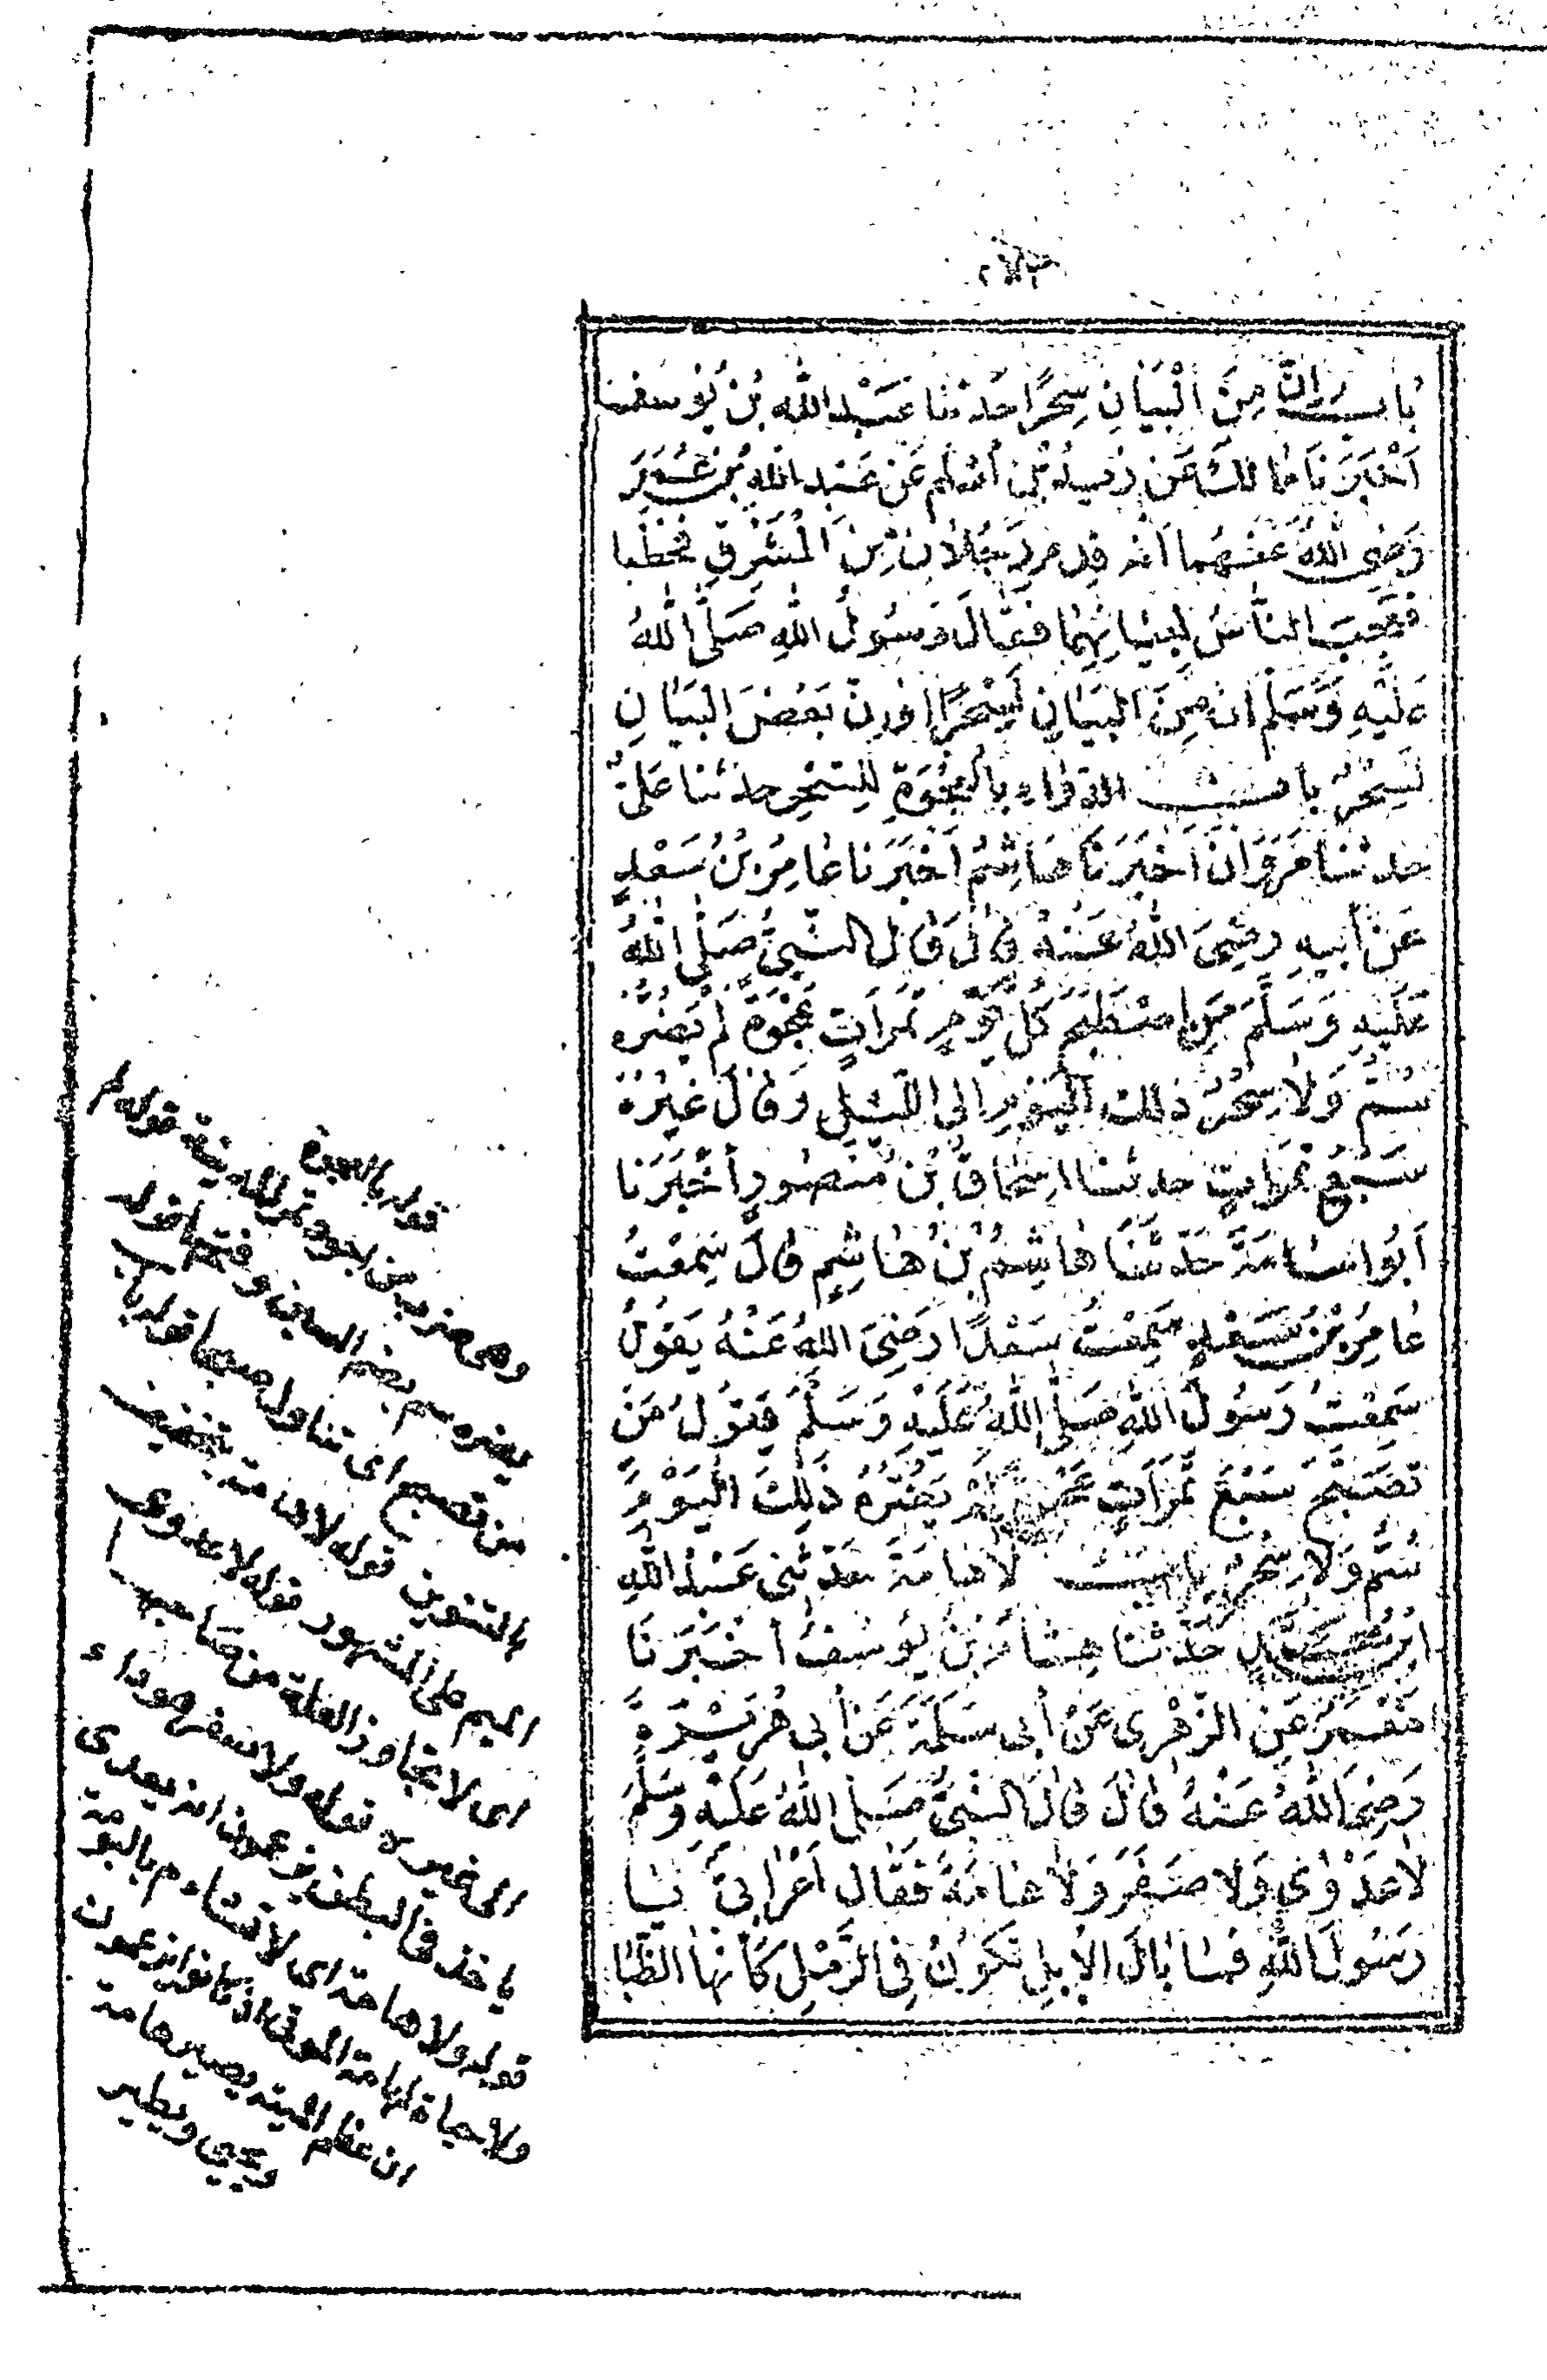 باب إن مِنَ الْبَيَانِ سِحْرًا حَدثنا عَبْد الله بْنُ يُوسف
أَخْبَرَنَا مَالك عَن زيد بْنِ أَسْلم عَنْ عَبْد الله بْنِ عُمَرَ
رَضِيَ اللهُ عَنْهُمَا أَنه قدم رَجُلَانِ مِنَ الْمَشْرِقِ فَخَطَبا
فعَجِبَ الناسُ لِبَيَانِهِمَا فقال رَسُولُ اللهِ صَلَّى اللهُ
عَلَيْهِ وَسَلم ان مِنَ البَيَانِ لَسِحْرًا اوْ إن بَعْضَ البَيَانِ
لَسِحْرٌ باب الدواء بالعَجْوَةِ للسحرِ حدثنا عَلِيٌّ
حدثنا مَرْوَانُ أَخْبَرَنَا هَاشِمٌ أَخْبَرَنَا عَامِرُ بْنُ سَعْدٍ
عَنْ أَبيهِ رضِيَ اللهُ عَنْهُ قالَ قالَ النَّبِيُّ صَلَّى اللهُ
عَلَيْهِ وَسَلَّمَ مَنِ اصْطَبَحَ كُلَّ يَوْمٍ تَمَرَاتٍ عَجْوَةً لَمْ يَضُرَّهُ
سُمٌّ وَلَا سِحْرٌ ذلك الْيَوْمَ إلى اللَّيْلِ وَقالَ غَيْرُهُ
سَبْعَ تَمَرَاتٍ حدثنا اسْحَاقُ بْنُ مَنْصُورٍ أَخْبَرَنَا
أَبُو اسَامَةَ حَدَّثَنَا هَاشِمُ بْنُ هَاشِمٍ قالَ سَمِعْتُ
عَامِرَ بْنَ سَعْدٍ سَمِعْتُ سَعْدًا رَضِيَ اللهُ عَنْهُ يَقُولُ
سَمِعْتُ رَسُولَ اللهِ صَلَّى اللهُ عَلَيْهِ وَسَلَّمَ يَقُولُ مَنْ
تَصَبَّحَ سَبْعَ تَمَرَاتٍ عَجْوَةً لَمْ يَضُرَّهُ ذَلِكَ الْيَوْمَ
سُمٌّ وَلَا سِحْرٌ باب لا هَامَةَ حَدَّثَنِي عَبْدُ اللهِ
ابْنُ مُحَمَّدٍ حَدَّثَنَا هِشَامُ بْنُ يُوسُفَ أَخْبَرَنَا
مَعْمَرٌ عَنِ الزُّهْرِي عَنْ أَبِي سَلَمَةَ عَنْ أَبِي هُرَيْرَةَ
رَضِيَ اللهُ عَنْهُ قَالَ قَالَ النَّبِيُّ صَلَّى اللهُ عَلَيْهِ وَسَلَّمَ
لَا عَدْوَى وَلا صَفَرَ وَلَا هَامَةَ فَقَالَ أَعْرَابِيٌّ يَا
رَسُولَ اللهِ فَمَا بَالُ الإِبِلِ تَكُونُ فِي الرَّمْلِ كَأَنَّهَا الظِّبَا
قوله بالعجوة
وهى ضرب من اجود تمر المدينة قوله لم
يضره سم بضم السين وفتحها قوله
من تصبح اى تناول صبحا قوله باب
بالتنوين قوله لا هامة بتخفيف
الميم على المشهور قوله لا عدوى
اى لا تجاوز العلة من صاحبها
الى غيره قوله ولا صفر هو داء
ياخذ فى البطن يزعمون انه يعدى
قوله ولا هامة اى لا تشاءم بالبومة
ولا حياة لهامة الموتى اذ كانوا يزعمون
ان عظام الميت يصير هامة
ويحيى ويطير